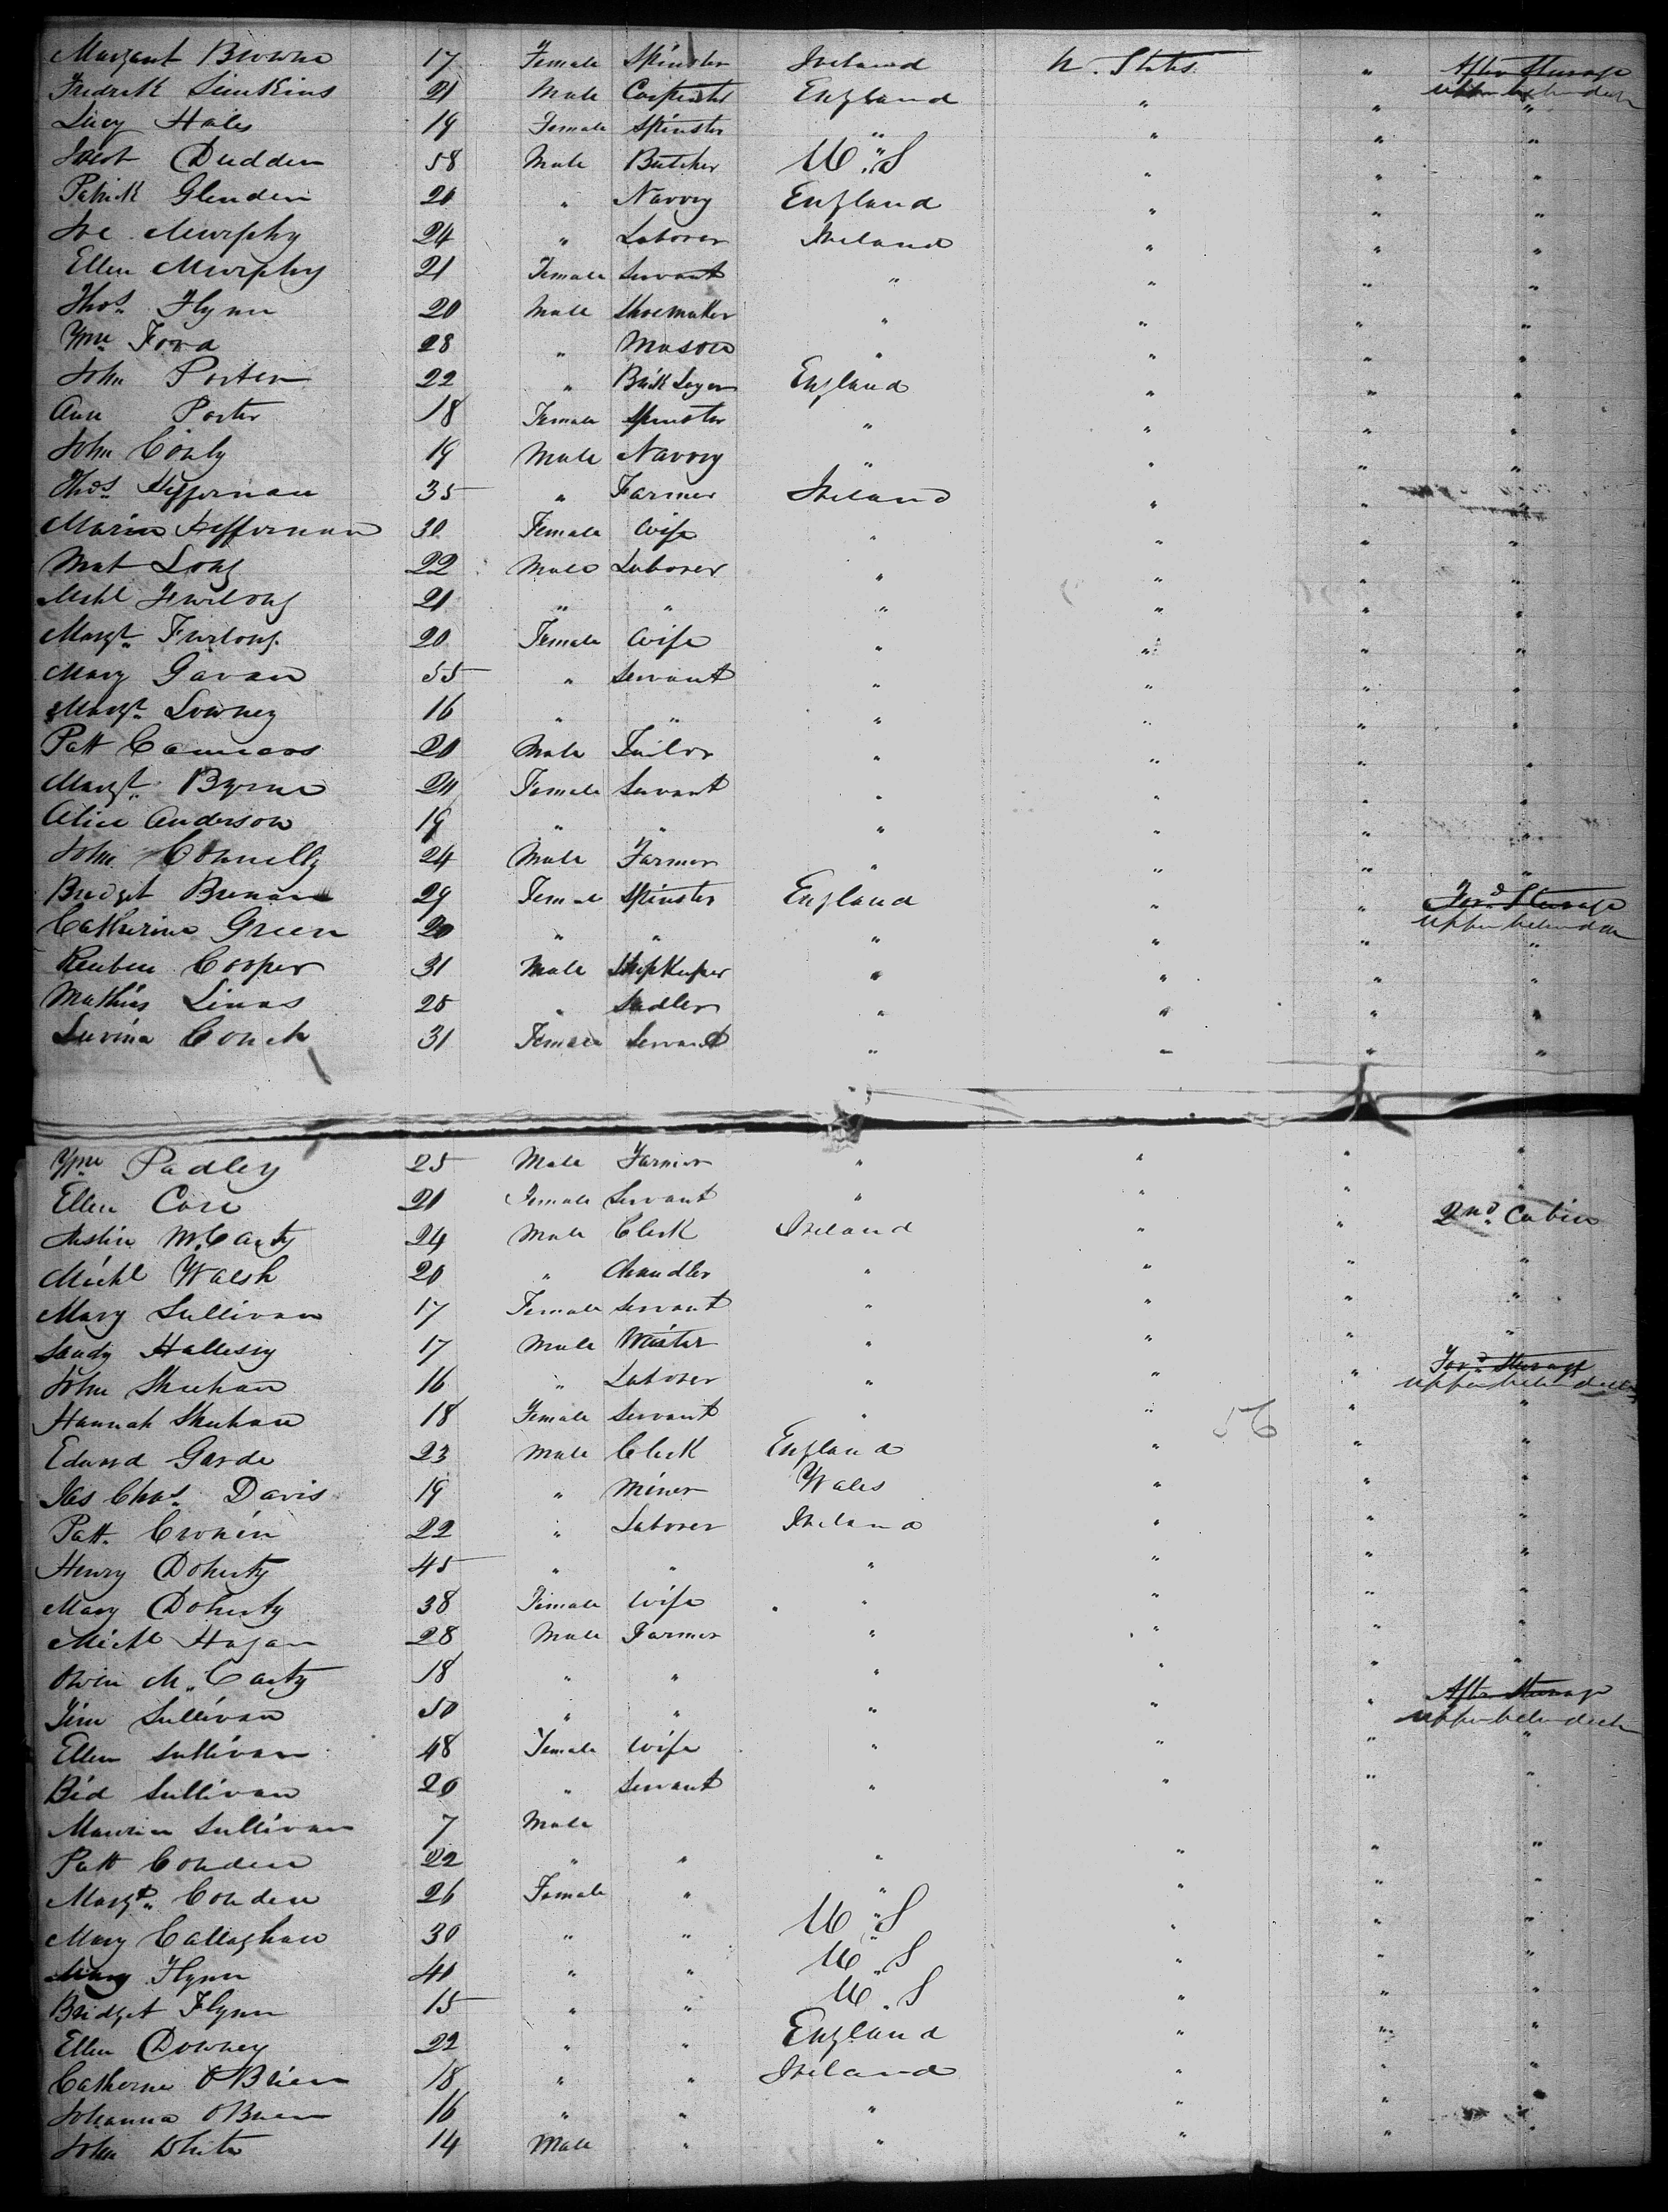 Margant Browne 17 Female Spinster Ireland U. States " After Sturage
Fredrick Simkins 21 Male Carpenter England " " upper betn deck "
Lucy Hales 19 Female Spinster " " " "
Jacob Dudden 58 Male Butcher U.S " " "
Patrick Glenden 20 " Navvy England " " "
Joe Murphy 24 " Laborer Ireland " " "
Ellen Murphy 21 Female Servant " " " "
Thos. Flynn 20 Male Shoemaker " " " "
Wm Ford 28 " Mason " " " "
John Porter 22 " Brick Layer England " " "
Ann Porter 18 Female Spinster " " " "
John Conly 19 Male Navvy " " " "
Thos. Heffernan 35 " Farmer Ireland " " "
Maria Heffernan 30 Female Wife " " " "
Mat Long 22 Male Laborer " " " "
Michl Furlong 21 " " " " " "
Margt. Furlong 20 Female Wife " " " "
Mary Gavan 55 " Servant " " " "
Margt. Lowney 16 " " " " " "
Patt 20 Male Tailor " " " "
Margt. Byrne 24 Female Servant " " " "
Alice Anderson 19 " " " " " "
John Connelly 24 Male Farmer " " " "
Bridget Brenan 29 Female Spinster England " " Ford. Sturage
Catherine Green 20 " " " " " upper betn deck "
Reuben Cooper 31 Male Shopkeeper " " " "
Mathias Linas 28 " Sadler " " " "
Luvina Couch 31 Female Servant " " " "
Wm Padley 25 Male Farmer " " " "
Ellen Core 21 Female Servant " " " "
Justin McCarty 24 Male Clerk Ireland " " 2nd. Cabin
Michl Walsh 20 " Chandler " " " "
Mary Sullivan 17 Female Servant " " " "
Sandy Hallesy 17 Male Waiter " " " "
John Sheehan 16 " Laborer " " " Ford. Sturage upper betn deck
Hannah Sheehan 18 Female Servant " " 56 " "
Edward Garde 23 Male Clerk England " " "
Jas Chas. Davis 19 " Miner Wales " " "
Patt. Cronin 22 " Laborer Ireland " " "
Henry Doherty 45 " " " " " "
Mary Doherty 38 Female Wife " " " "
Michl Hagan 28 Male Farmer " " " "
Owen McCarty 18 " " " " " "
Jim Sullivan 50 " " " " " After Sturage
Ellen Sullivan 48 Female Wife " " " upper betn deck "
Bid Sullivan 20 " Servant " " " "
Maurice Sullivan 7 Male
Patt Conden 22 " " " " " "
Margt. Conden 26 Female " " " " "
Mary Callaghan 30 " " U.S " " "
Mary Flynn 40 " " U.S " " "
Bridget Flynn 15 " " U.S " " "
Ellen Downey 22 " " England " " "
Catherine O'Brien 18 " " Ireland " " "
Johanna O'Brien 16 " " " " " "
John White 14 Male " " " " "